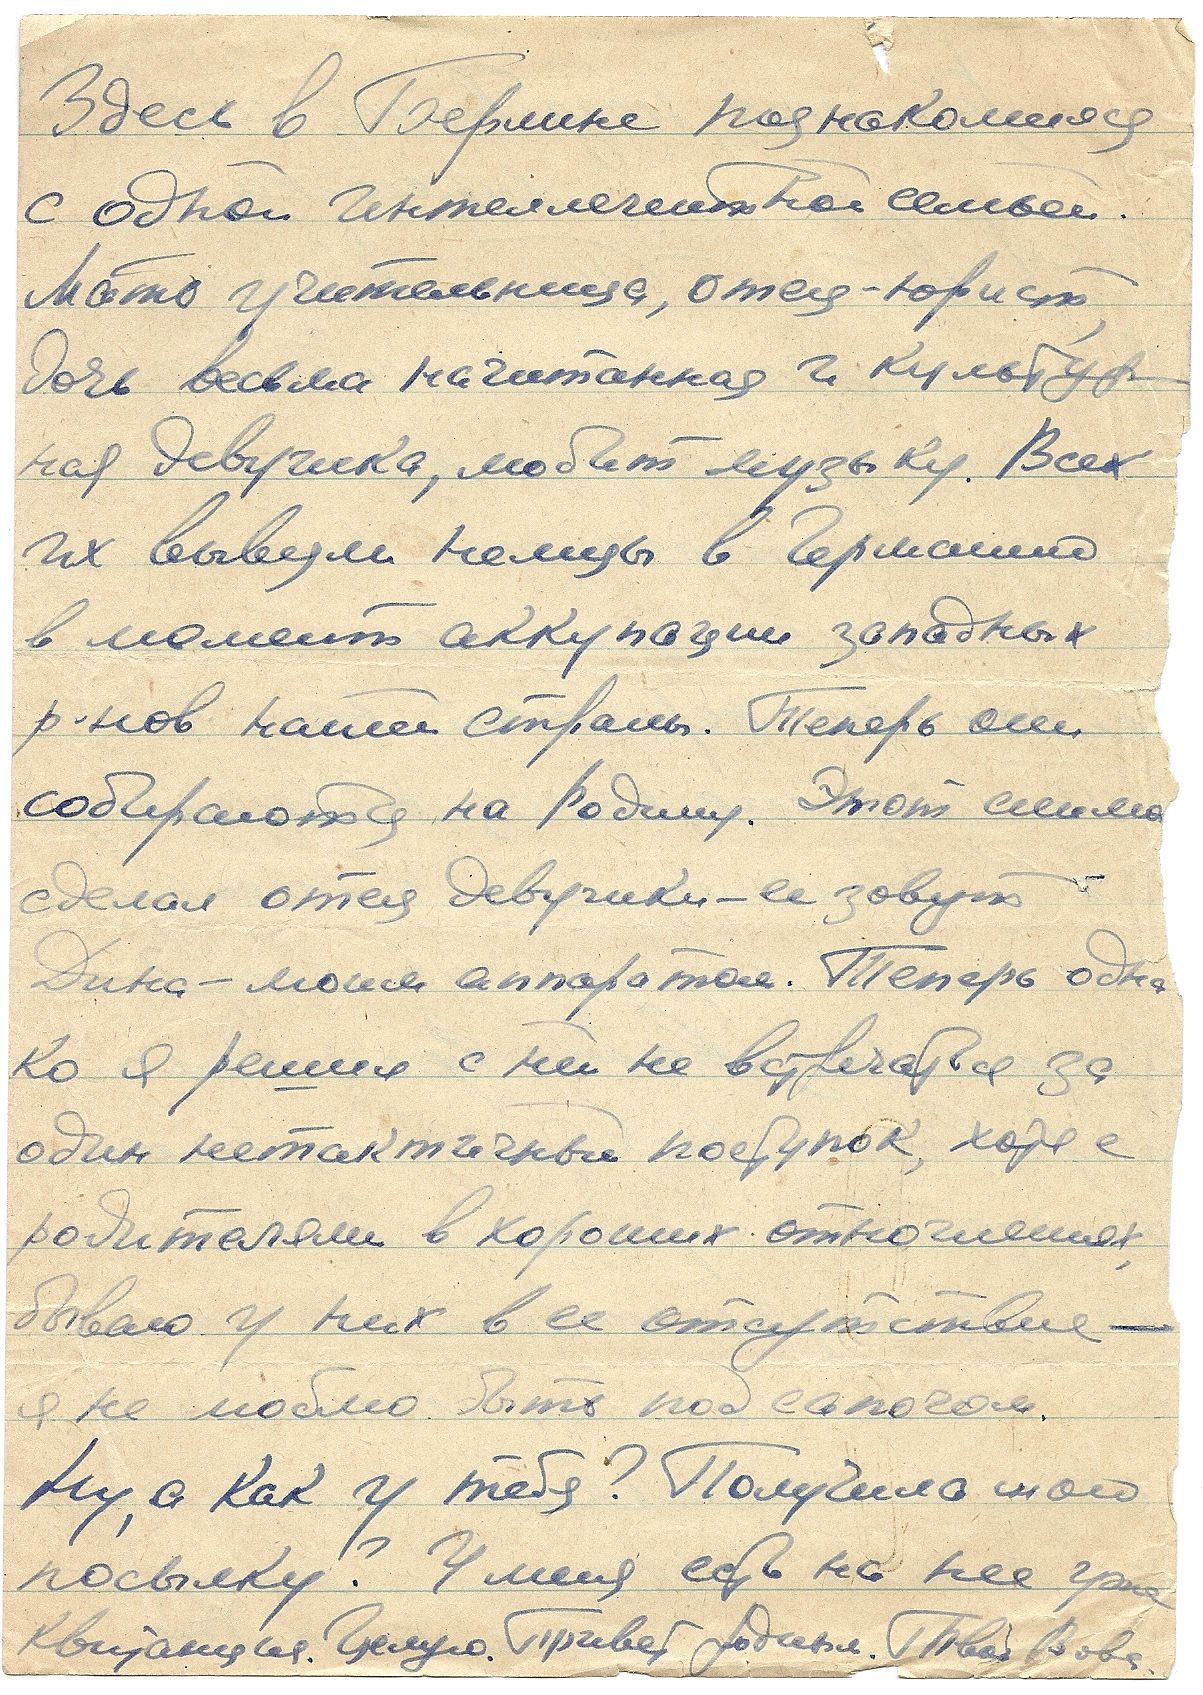 Здесь в Берлине познакомился
с одной интеллегентной семьей.
Мать учительница, отец-юрист,
дочь весьма начитанная и культур
ная девушка, любит музыку. Всех
их вывезли немцы в Германию
в момент аккупации западных
р-нов нашей страны. Теперь они
собираются на Родину. Этот снимок
сделал отец девушки - ее зовут
Дина - моим аппаратом. Теперь одна
ко я решил с ней не встречаться за
один нетактичный поступок, хотя с
родителями в хороших отношениях,
бываю у них в ее отсутствие -
я не люблю быть под сапогом.
Ну, а как у тебя? Получила мою
посылку? У меня есть на нее уже
квитанция. Целую. Привет родным. Твой Вова.